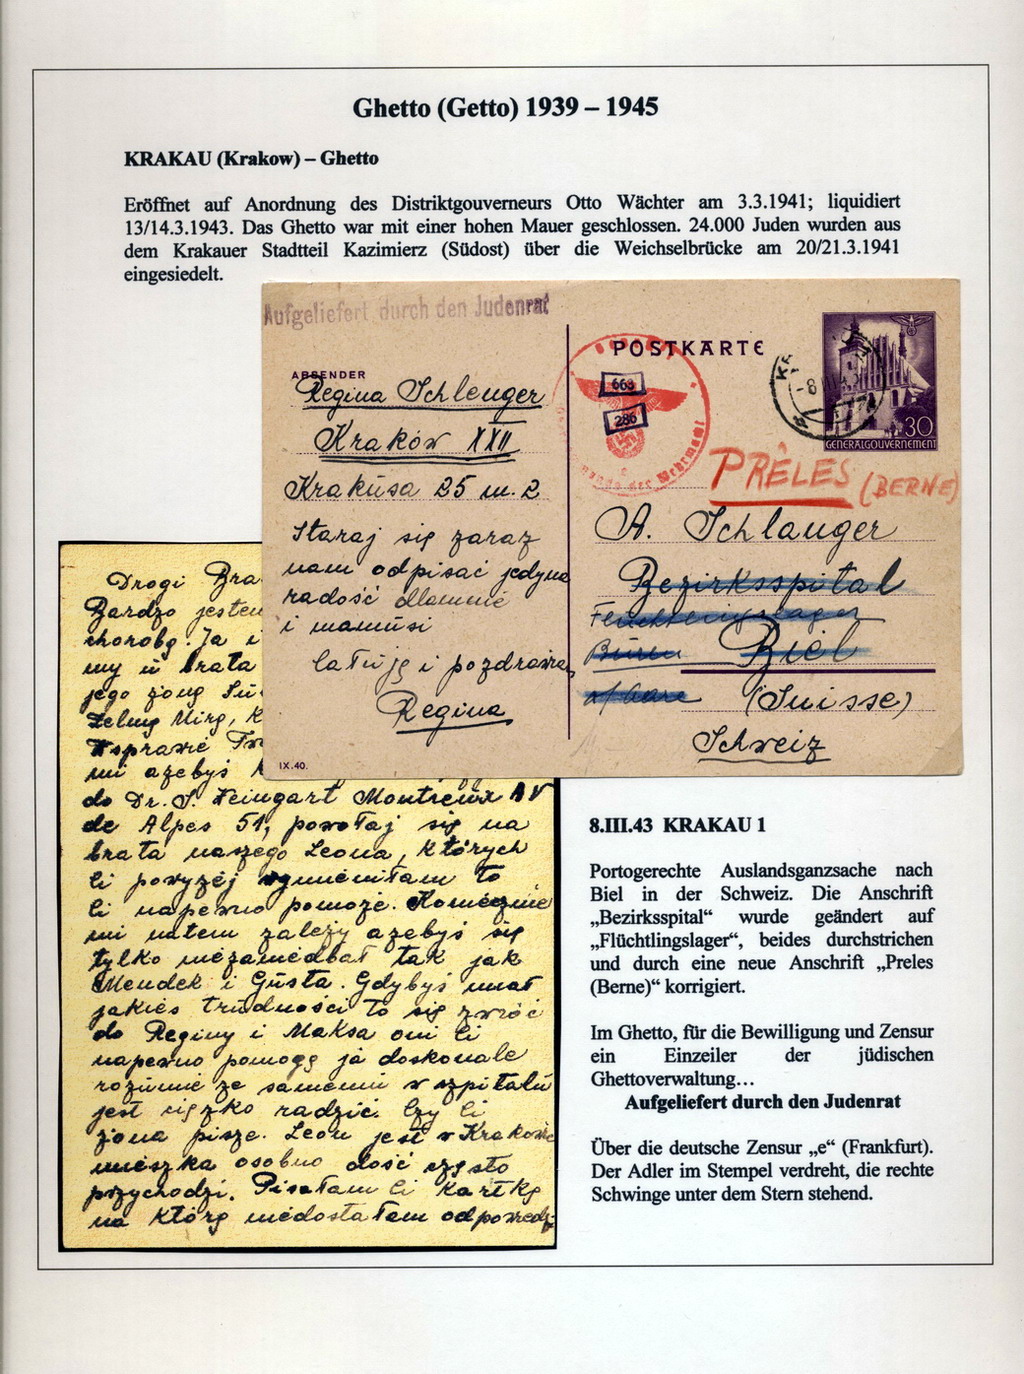 Ghetto (Getto) 1939 – 1945
KRAKAU (Krakow) – Ghetto
Eröffnet auf Anordnung des Distriktgouverneurs Otto Wächter am 3.3.1941; liquidiert
13/14.3.1943. Das Ghetto war mit einer hohen Mauer geschlossen. 24.000 Juden wurden aus
dem Krakauer Stadtteil Kazimierz (Südost) über die Weichselbrücke am 20/21.3.1941
eingesiedelt.
Aufgeliefert durch den Judenrat
POSTKARTE
ABSENDER
Regina Schlenger
Kraków XXII
Krakusa 25 m. 2
Staraj się zaraz
nam odpisać jedyna
radość dlamnie
i mamusi
Całuję i pozdrawiam
Regina
IX.40.
668
286
e
der Wehrmacht
30
GENERALGOUVERNEMENT
PRÊLES (BERNE)
A. Schlanger
Bezirksspital
Biel
(Suisse)
Schweiz
Drogi Bra
Bardzo jestem
chorobą. Ja i
my u brata
jego żoną
Mirą, K
do Dr. S. Weingart Montreux AV
de Alpes 51, powołaj się na
brata naszego Leona, których
Ci powyżej wymieniłam to
Ci napewno pomoże. Koniecznie
mi natem zależy ażebyś się
tylko niezaniedbał tak jak
Mendek i Gusta. Gdybyś miał
jakieś trudności to się zwróć
do Reginy i Maksa oni Ci
napewno pomogą ja doskonale
rozumie że samemu w szpitalu
jest ciężko radzić. Czy Ci
żona pisze. Leon jest w Krakowie
mieszka osobno dość często
przychodzi. Pisałam Ci kartkę
na którą niedostałam odpowiedzi
8.III.43 KRAKAU 1
Portogerechte Auslandsganzsache nach
Biel in der Schweiz. Die Anschrift
„Bezirksspital“ wurde geändert auf
„Flüchtlingslager“, beides durchstrichen
und durch eine neue Anschrift „Preles
(Berne)“ korrigiert.
Im Ghetto, für die Bewilligung und Zensur
ein Einzeiler der jüdischen
Ghettoverwaltung…
Aufgeliefert durch den Judenrat
Über die deutsche Zensur „e“ (Frankfurt).
Der Adler im Stempel verdreht, die rechte
Schwinge unter dem Stern stehend.